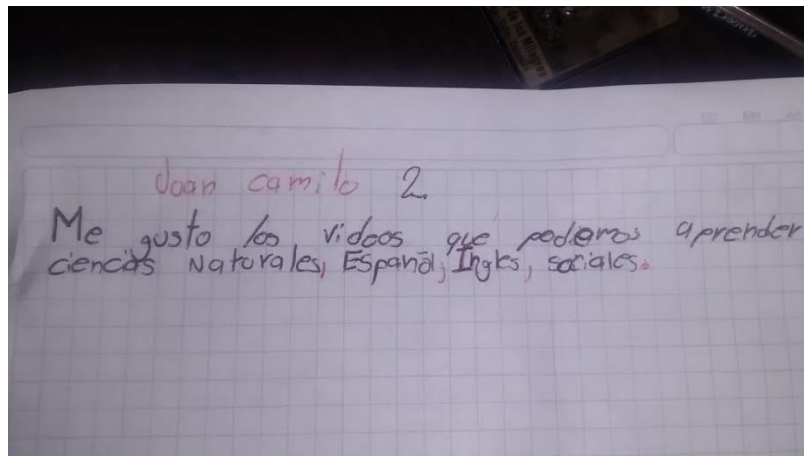 de los Milagros
Joan camilo 2.
Me gusto los videos que podemos aprender
ciencias Naturales, Español, Ingles, sociales.